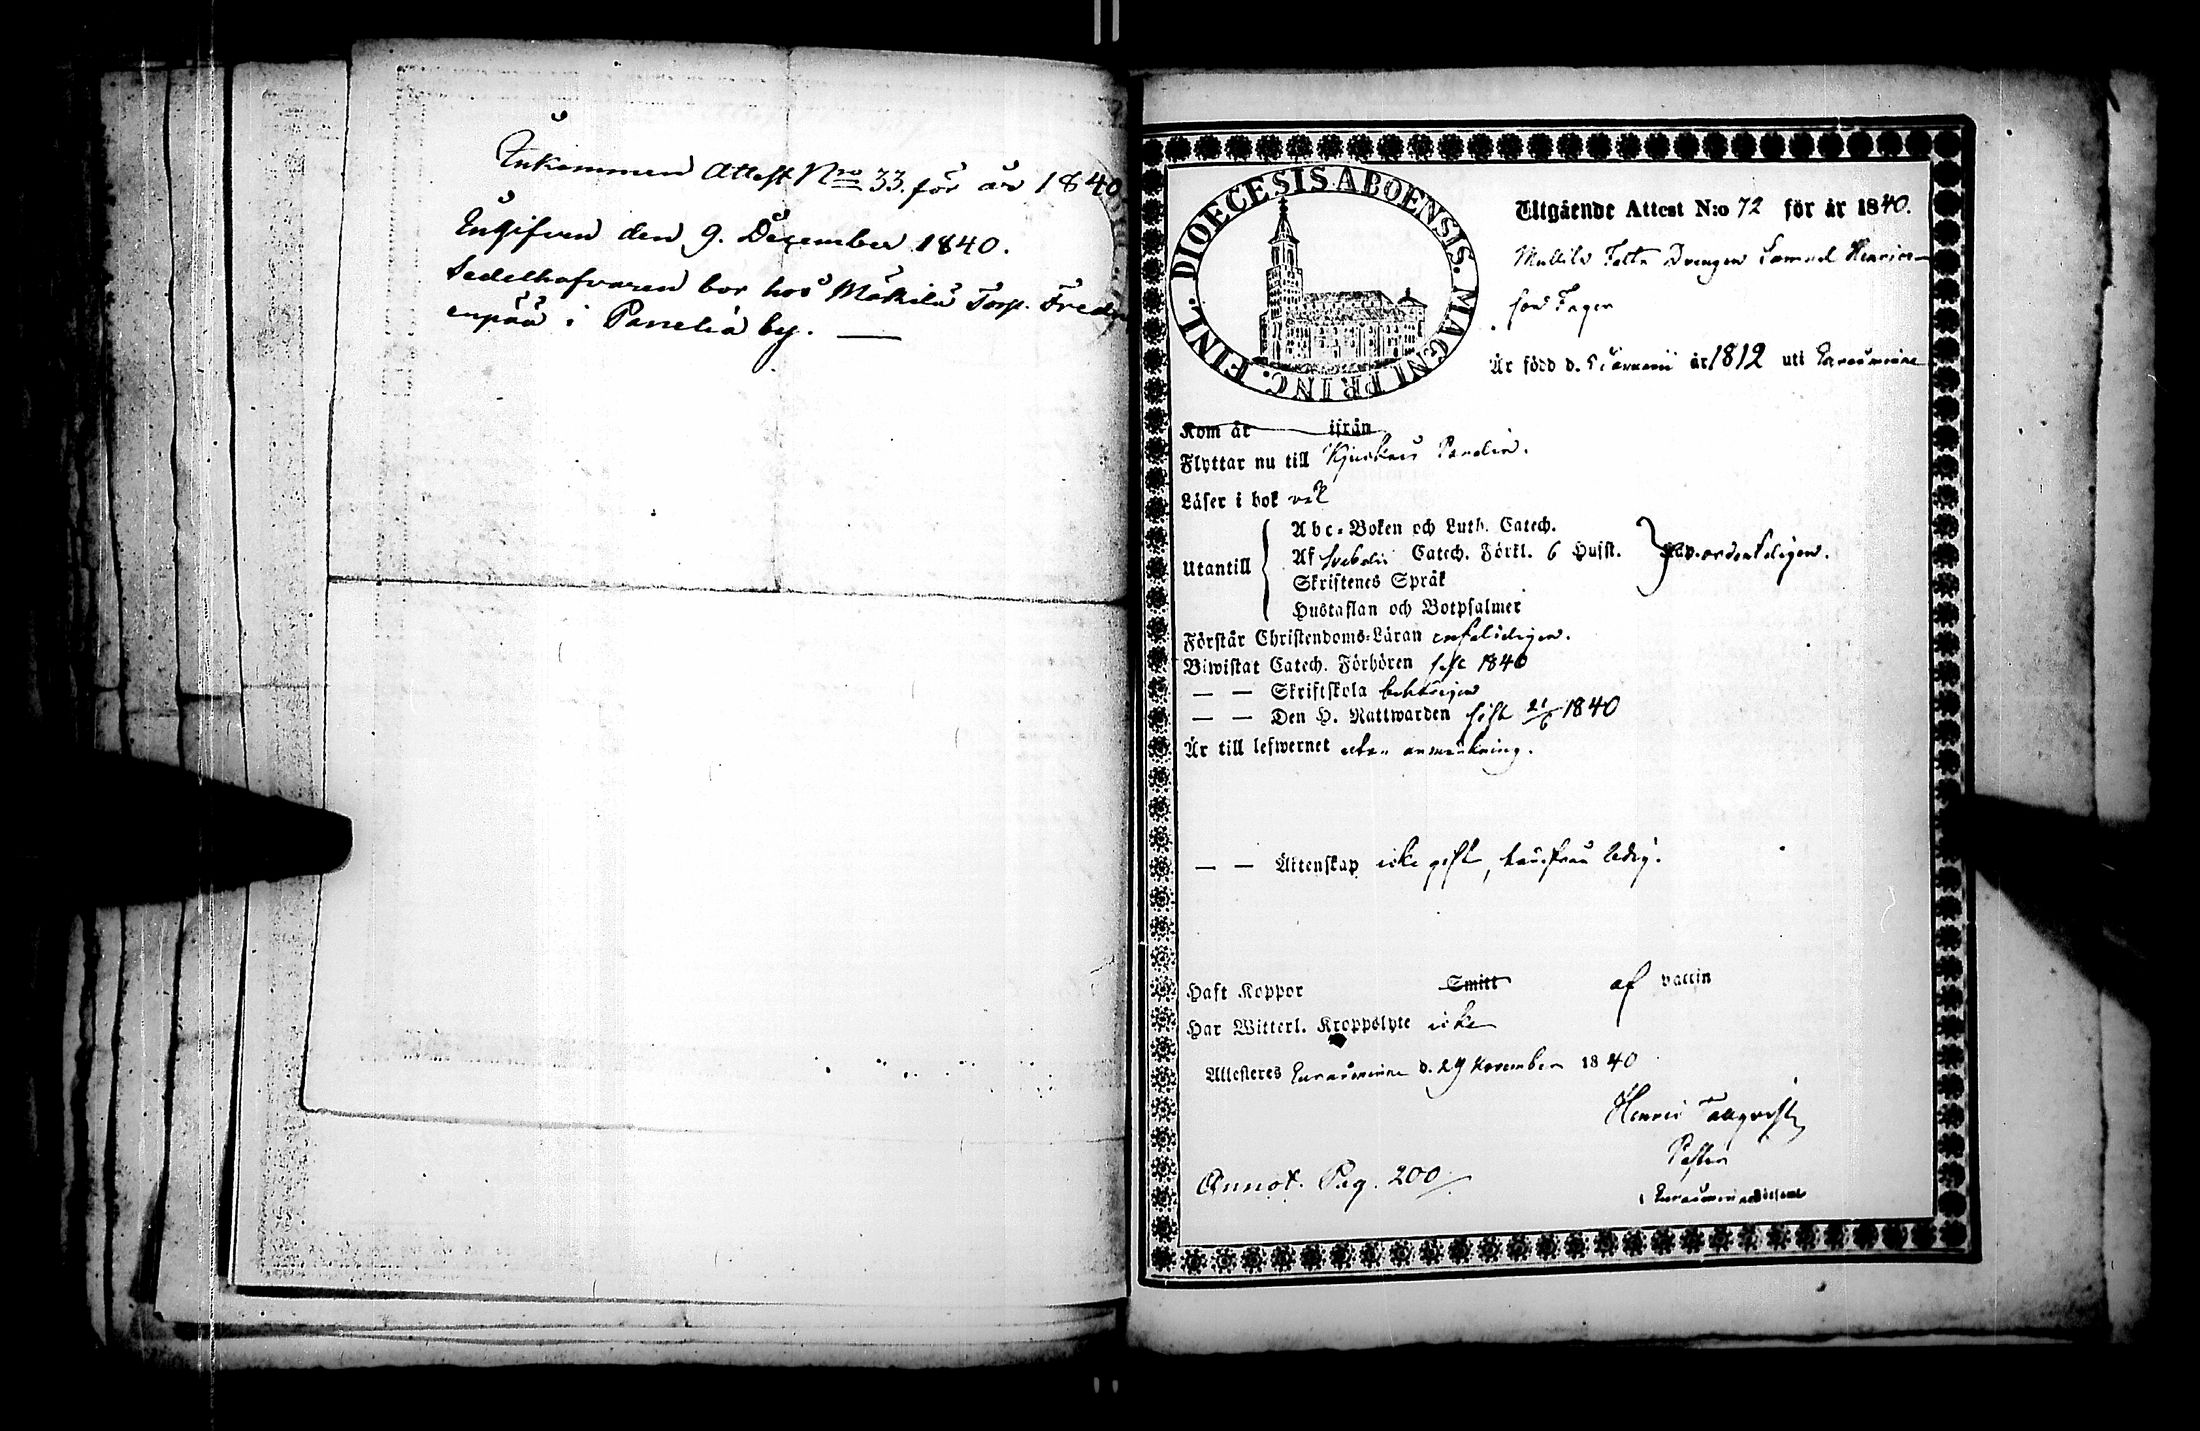 Inkommen Attest Nro 33. för år 1840
Ingifven den 9. December 1840.
Sedelhafvaren bor hos Mäkilä Torp. Fred
enpää i Panelia by. —
DIOECESIS ABOENSIS. MAGNI PRINC. FINL.
Utgående Attest N:o 72 för år 1840.
Drengen Samuel Henrics-
son Fager
Är född d. 5 Januarii år 1812 uti Euraåminne
Kom år ifrån
Flyttar nu till Kjukais Panelia.
Läser i bok väl
Utantill
Abc-Boken och Luth. Catech.
Af Svebelii Catech. Förkl. 6 Hufst.
Skriftenes Språk
Hustaflan och Botpsalmer
ordenteligen.
Förstår Christendoms-Läran enfaldigen.
Biwistat Catech. Förhören sist 1840
— — Skriftskola behörigen
— — Den H. Nattwarden sist 21/6 1840
Är till lefwernet utan anmärkning.
— — Äktenskap icke gift, härifrån ledig.
Haft Koppor Smitt af vaccin
Har Witterl. Kroppslyte icke
Attesteres Euraåminne d. 29 November 1840
Henric Tallqvist
Pastor
i Euraåminne
Annot. Pag. 200